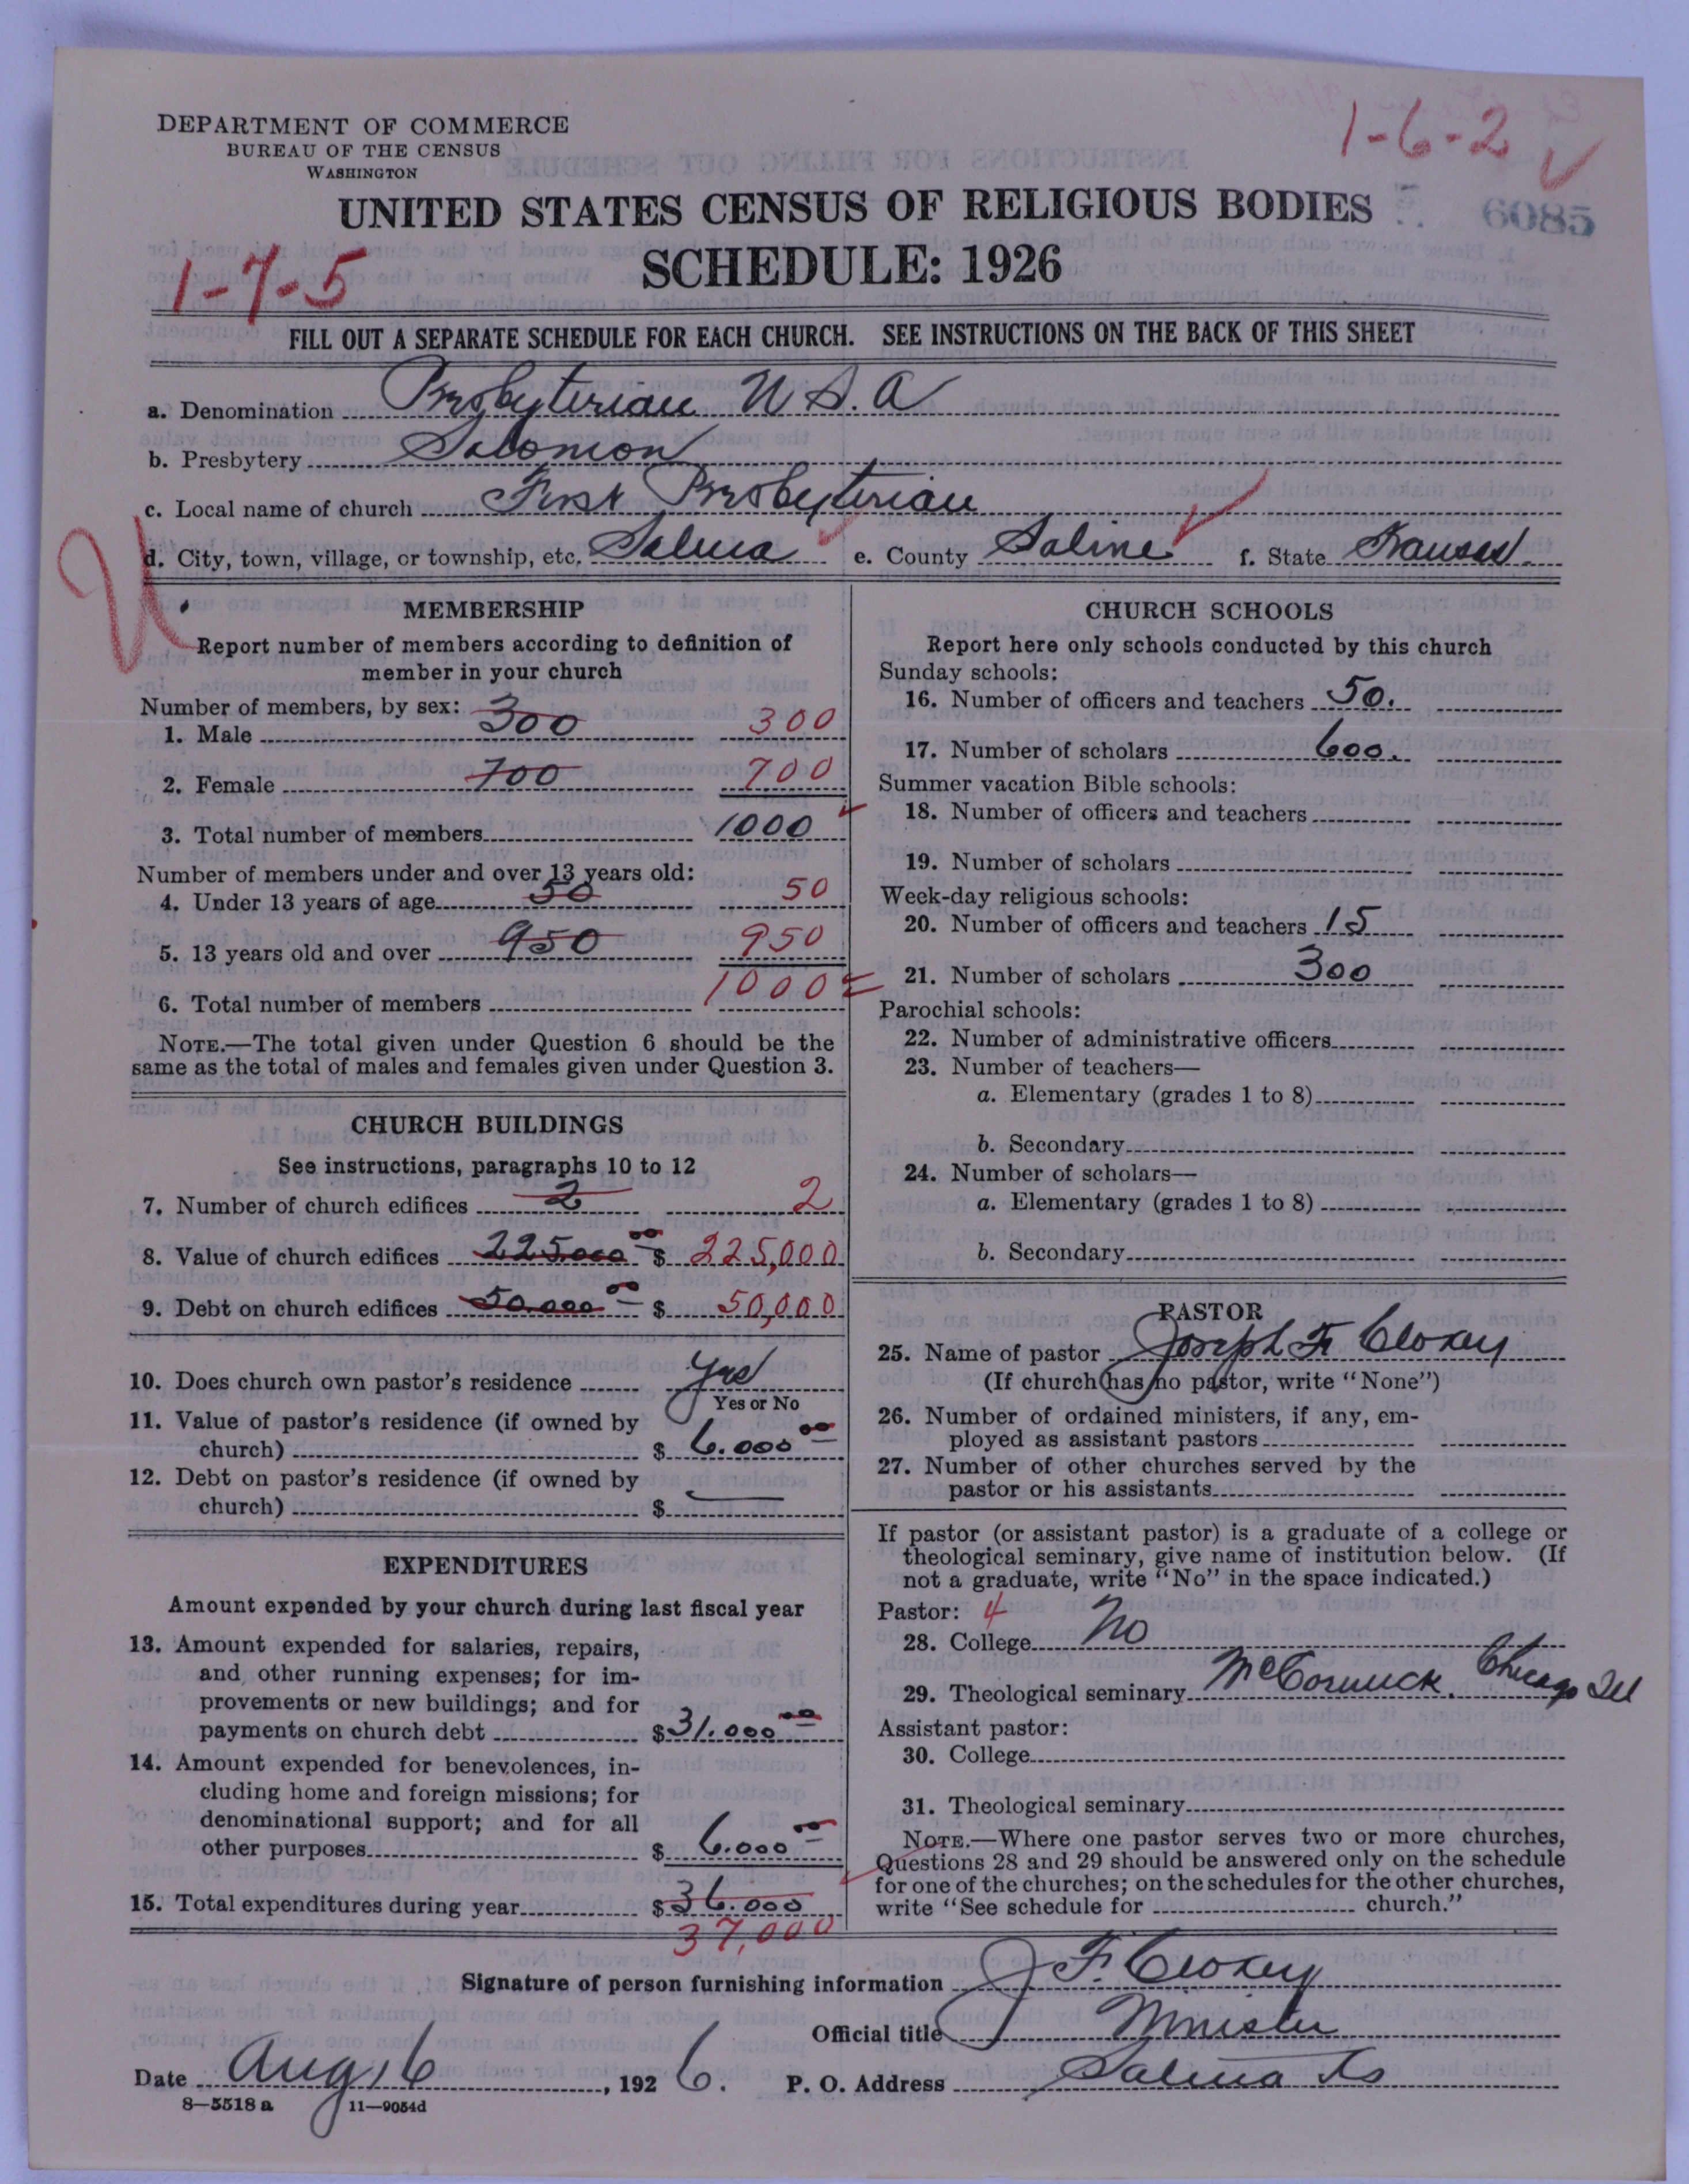 DEPARTMENT OF COMMERCE
BUREAU OF THE CENSUS
WASHINGTON
1-6-2
UNITED STATES CENSUS OF RELIGIOUS BODIES
6085
SCHEDULE: 1926
1-7-5
FILL OUT A SEPARATE SCHEDULE FOR EACH CHURCH. SEE INSTRUCTIONS ON THE BACK OF THIS SHEET
a. Denomination Presbyterian U.S.A
b. Presbytery Solomon
c. Local name of church First Presbyterian
d. City, town, village, or township, etc. Salina e. County Saline f. State Kansas.
U
MEMBERSHIP
Report number of members according to definition of
member in your church
Number of members, by sex:
1. Male 300 300
2. Female 700 700
3. Total number of members 1000
Number of members under and over 13 years old:
4. Under 13 years of age 50 50
5. 13 years old and over 950 950
6. Total number of members 1000
NOTE.—The total given under Question 6 should be the
same as the total of males and females given under Question 3.
CHURCH BUILDINGS
See instructions, paragraphs 10 to 12
7. Number of church edifices 2 2
8. Value of church edifices 225000 00 $ 225,000
9. Debt on church edifices 50.000 00 $ 50,000
10. Does church own pastor's residence Yes
Yes or No
11. Value of pastor's residence (if owned by
church) $ 6.000 00
12. Debt on pastor's residence (if owned by
church) $ —
EXPENDITURES
Amount expended by your church during last fiscal year
13. Amount expended for salaries, repairs,
and other running expenses; for im-
provements or new buildings; and for
payments on church debt $ 31.000 00
14. Amount expended for benevolences, in-
cluding home and foreign missions; for
denominational support; and for all
other purposes $ 6.000 00
15. Total expenditures during year $ 36.000
37,000
CHURCH SCHOOLS
Report here only schools conducted by this church
Sunday schools:
16. Number of officers and teachers 50.
17. Number of scholars 600.
Summer vacation Bible schools:
18. Number of officers and teachers
19. Number of scholars
Week-day religious schools:
20. Number of officers and teachers 15
21. Number of scholars 300
Parochial schools:
22. Number of administrative officers
23. Number of teachers—
a. Elementary (grades 1 to 8)
b. Secondary
24. Number of scholars—
a. Elementary (grades 1 to 8)
b. Secondary
PASTOR
25. Name of pastor Joseph F. Clokey
(If church has no pastor, write "None")
26. Number of ordained ministers, if any, em-
ployed as assistant pastors
27. Number of other churches served by the
pastor or his assistants
If pastor (or assistant pastor) is a graduate of a college or
theological seminary, give name of institution below. (If
not a graduate, write "No" in the space indicated.)
Pastor: 4
28. College No
29. Theological seminary McCormick. Chicago Ill
Assistant pastor:
30. College
31. Theological seminary
NOTE.—Where one pastor serves two or more churches,
Questions 28 and 29 should be answered only on the schedule
for one of the churches; on the schedules for the other churches,
write "See schedule for church."
Signature of person furnishing information J. F. Clokey
Official title Minister
Date Aug 16, 1926. P. O. Address Salina Ks
8—5518 a 11—9054d